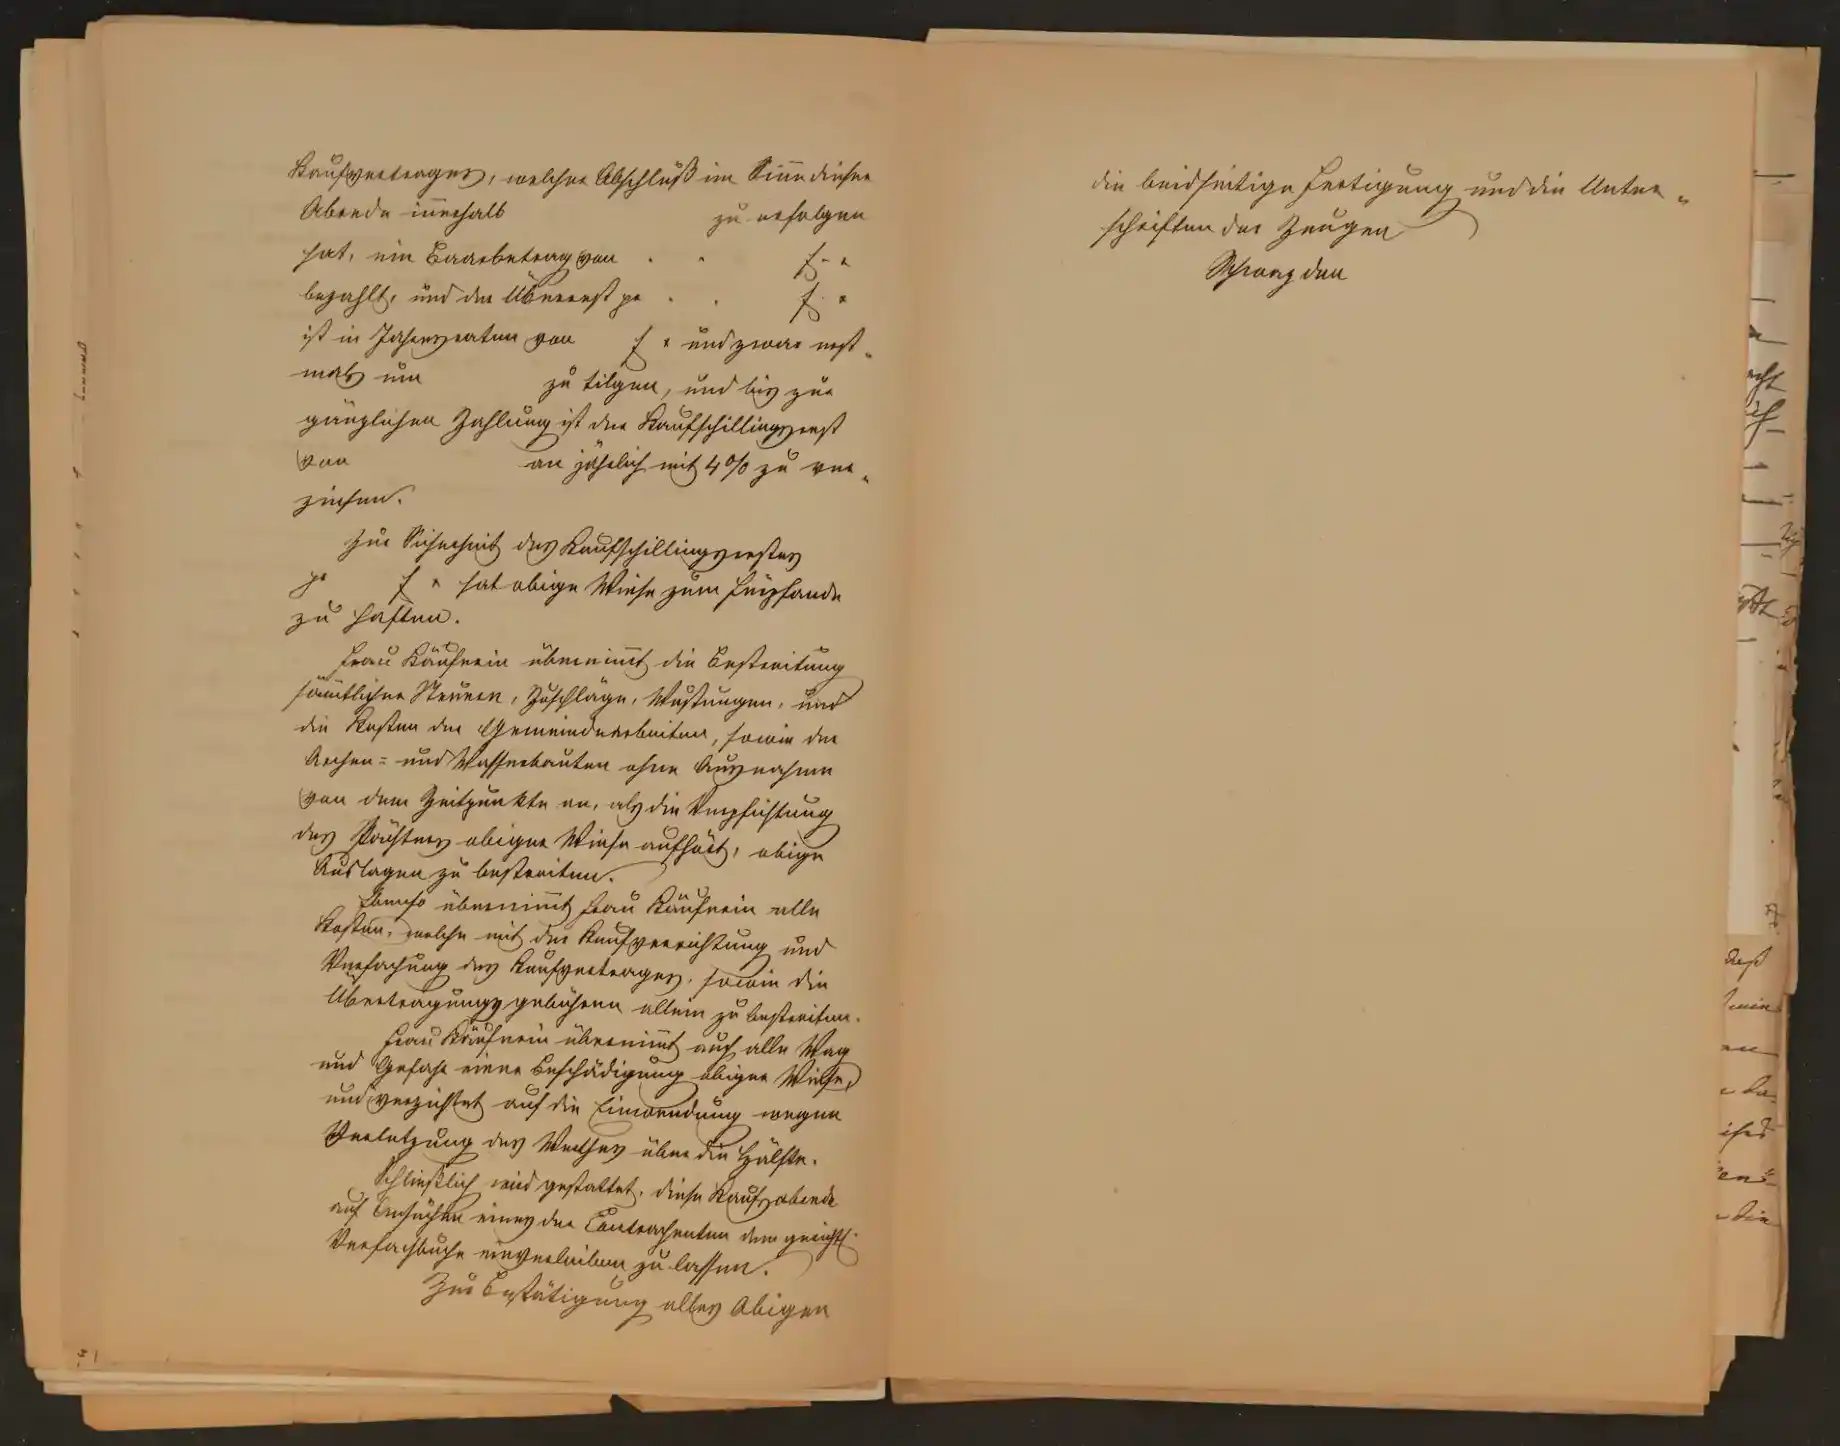 Kaufvertrages, welcher Abschluß im Sinne dieser
Abrede innerhalb zu erfolgen
hat, ein Baarbetrag von . . f - "
bezahlt, und der Überrest pr . . f. "
ist in Jahresraten von f " und zwar erst-
mals um zu tilgen, und bis zur
gänzlichen Zahlung ist der Kaufschillingsrest
von an jährlich mit 4% zu ver-
zinsen.
Zur Sicherheit des Kaufschillingsrestes
pr f " hat obige Wiese zum Fürpfande
zu haften.
Frau Käuferin übernimmt die Bestreitung
sämtlicher Steuern, Zuschläge, Wustungen, und
die Kosten der Gemeindearbeiten, sowie der
Archen- und Wasserbauten ohne Ausnahme
von dem Zeitpunkte an, als die Verpflichtung
des Pächters obiger Wiese aufhört, obige
Auslagen zu bestreiten.
Ebenso übernimmt Frau Käuferin alle
Kosten, welche mit der Kaufserrichtung und
Verfachung des Kaufvertrages, sowie die
Übertragungsgebühren allein zu bestreiten.
Frau Käuferin übernimmt auch alle Wag
und Gefahr einer Beschädigung obiger Wiese,
und verzichtet auf die Einwendung wegen
Verletzung des Werthes über die Hälfte.
Schließlich wird gestattet, diese Kaufsabrede
auf Ansuchen eines der Contrahenten dem gerichtl.
Verfachbuche einverleiben zu lassen.
Zur Bestätigung alles Obigen
die beidseitige Fertigung und die Unter-
schriften der Zeugen
Schwaz den